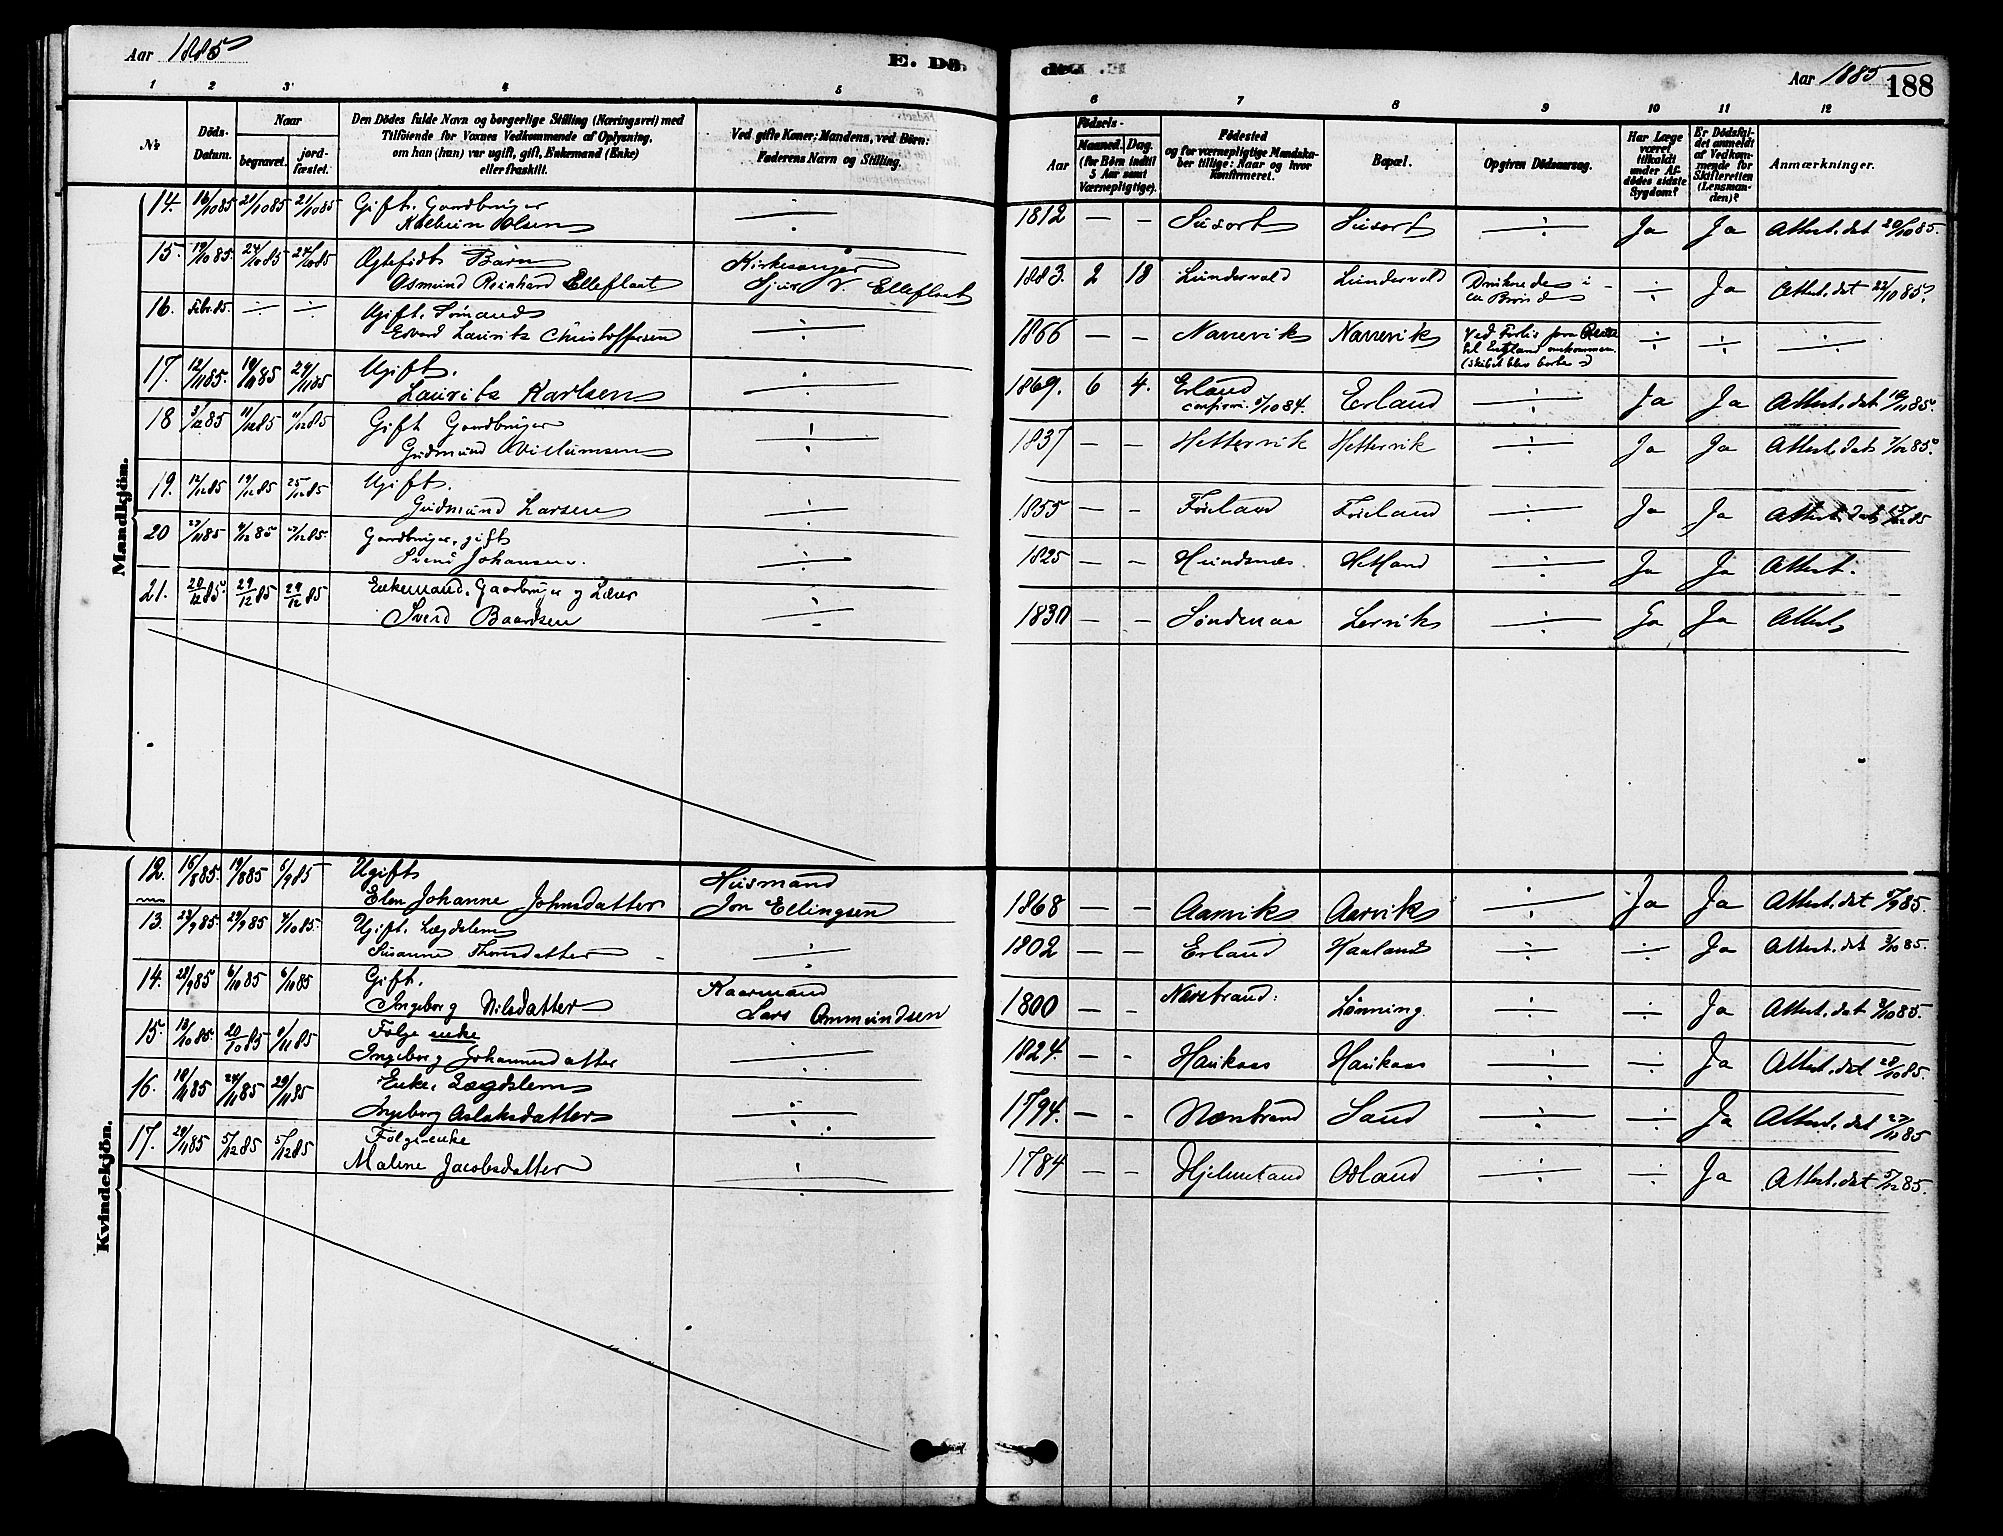 Aar 1885
E. Dö-
Aar 1885
188
1 2 3 4 5
6 7 8 9 10 11 12
№
Döds-
Datum.
Naar
begravet.
jord-
fæstet.
Den Dödes fulde Navn og borgerlige Stilling (Næringsvei) med
Tilföiende for Voxnes Vedkommende af Oplysning,
om han (hun) var ugift, gift, Enkemand (Enke)
eller fraskilt.
Ved gifte Koner: Mandens, ved Börn:
Faderens Navn og Stilling.
Födsels-
Aar
Maaned. Dag.
(for Börn indtil
5 Aar samt
Værnepligtige).
Födested
og for værnepligtige Mandska-
ber tillige: Naar og hvor
konfirmeret.
Bopæl.
Opgiven Dödsaarsag.
Har Læge
været
tilkaldt
under Af-
dödes sidste
Sygdom?
Er Dödsfal-
det anmeldt
af Vedkom-
mende for
Skifteretten
(Lensman-
den)?
Anmærkninger.
Mandkjön.
14. 16/10 85 21/10 85 21/10 85 Gift. Gaardbruger
Olsen ÷ 1812 — — Susort Susort ÷ Ja Ja Attest. dat 20/10 85.
15. 19/10 85 24/10 85 24/10 85 Ægtefödt Barn Kirkesanger
Osmund Reinhard Elleflaat Sjur V. Elleflaat 1883. 2 18 Lundervold Lundervold Druknede i
en Brönd ÷ Ja Attest. dat 22/10 85.
16. Febr. 85. ÷ ÷ Ugift. Sömand
Edvard Laurits Christoffersen ÷ 1866 — — Narrevik Narrevik Ved Forlis fra
til England omkommen.
(Skibet blev borte) ÷ ÷ ÷
17. 12/11 85. 19/11 85 29/11 85 Ugift.
Laurits Karlsen ÷ 1869. 6 4. Erland
confirm. 5/10 84. Erland Ja Ja Attest. dat 19/11 85.
18 3/12 85 11/12 85 11/12 85 Gift Gaardbruger
Gudmund Villumsen ÷ 1837 — — Hettervik Hettervik ÷ Ja Ja Attest. dat 7/12 85.
19. 12/12 85 19/12 85 25/12 85 Ugift.
Gudmund Larsen ÷ 1855 — — Föeland Föeland ÷ Ja Ja Attest. dat 15/12 85
20 27/11 85 4/12 85 4/12 85. Gaardbruger, gift
Svend Johansen. ÷ 1825 — — Hundsnæs. Hetland ÷ Ja Ja Attest.
21. 20/12 85. 29/12 85 29/12 85 Enkemand, Gaarbruger og Lærer
Svend Baardsen ÷ 1830 — — Söndenaa Lervik ÷ Ja Ja Attest
Kvindekjön.
12. 16/8 85. 19/8 85 6/9 85 Ugift Husmand
Elen Johanne Johnsdatter Jon Ellingsen 1868 — — Aarvik Aarvik ÷ Ja Ja Attest. dat 5/9 85.
13. 23/9 85. 29/9 85 4/10 85. Ugift. Lægdslem
Susanne Thorsdatter ÷ 1802 — — Erland Haaland ÷ ÷ Ja Attest. dat 3/10 85.
14. 28/9 85 6/10 85 6/10 85 Gift. Kaarmand
Ingeborg Nilsdatter Lars Ommundsen 1800 — — Nærstrand: Lönning. ÷ ÷ Ja Attest. dat 3/10 85.
15. 19/10 85. 20/10 85 9/11 85 Følge enke
Ingeborg Johannesdatter ÷ 1824. — — Haukaas Haukaas ÷ ÷ Ja Attest. dat 28/10 85.
16. 18/11 85 24/11 85 29/11 85 Enke, Lægdslem
Ingeborg Aslaksdatter ÷ 1794. — — Nærstrand Sand ÷ ÷ Ja Attest. dat 27/11 85
17. 29/11 85 5/12 85 5/12 85 Følge-enke
Malene Jacobsdatter ÷ 1784 — — Hjelmeland Odland ÷ ÷ Ja Attest. dat 5/12 85.